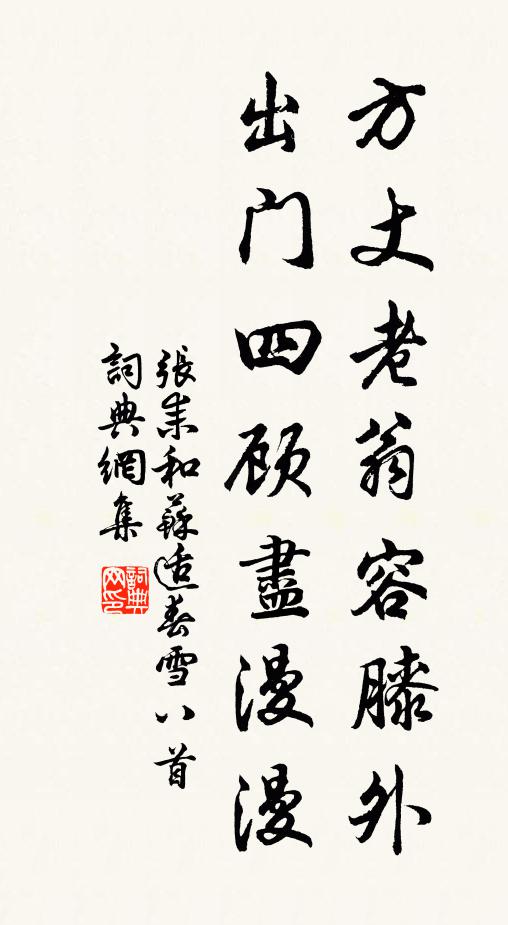 方丈老翁容膝外
出门四顾盡漫漫
張耒和蘇适春雪八首
詞典網集
詞典网印